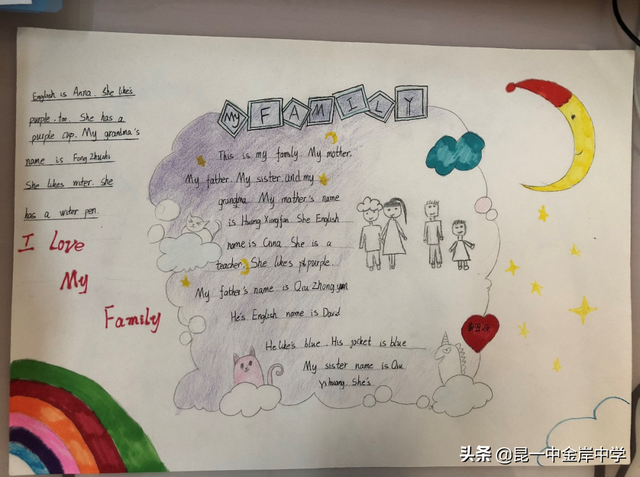 MY FAMILY
This is my family. My mother.
My father. My sister. and my
grangma. My mother's name
is Huang Xungfun. She English
name is Cnna. She is a
teacher. She likes purple.
My father's name is Qiu Zhong yun
He's English name is David
He like's blue. His jacket is blue
My sister name is Qiu
Yihuang. She's
English is Anna. She like's
purple. too. She has a
purple cup. My grandma's
name is Fong Zhushi
She likes writer. She
has a writer pen.
I Love
My
Family
头条 @昆一中金岸中学